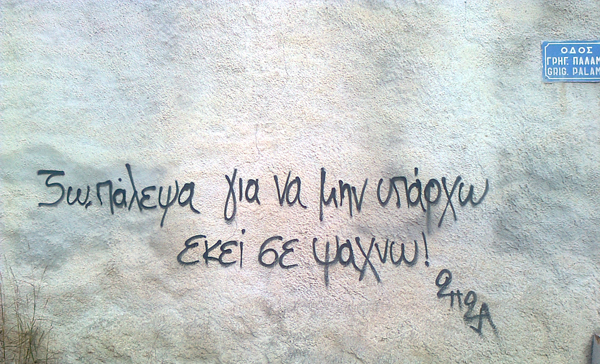 ΟΔΟΣ
ΓΡΗΓ. ΠΑΛΑΜ
GRIG. PALAM
Ζω, πάλεψα για να μην υπάρχω
εκεί σε ψαχνω!